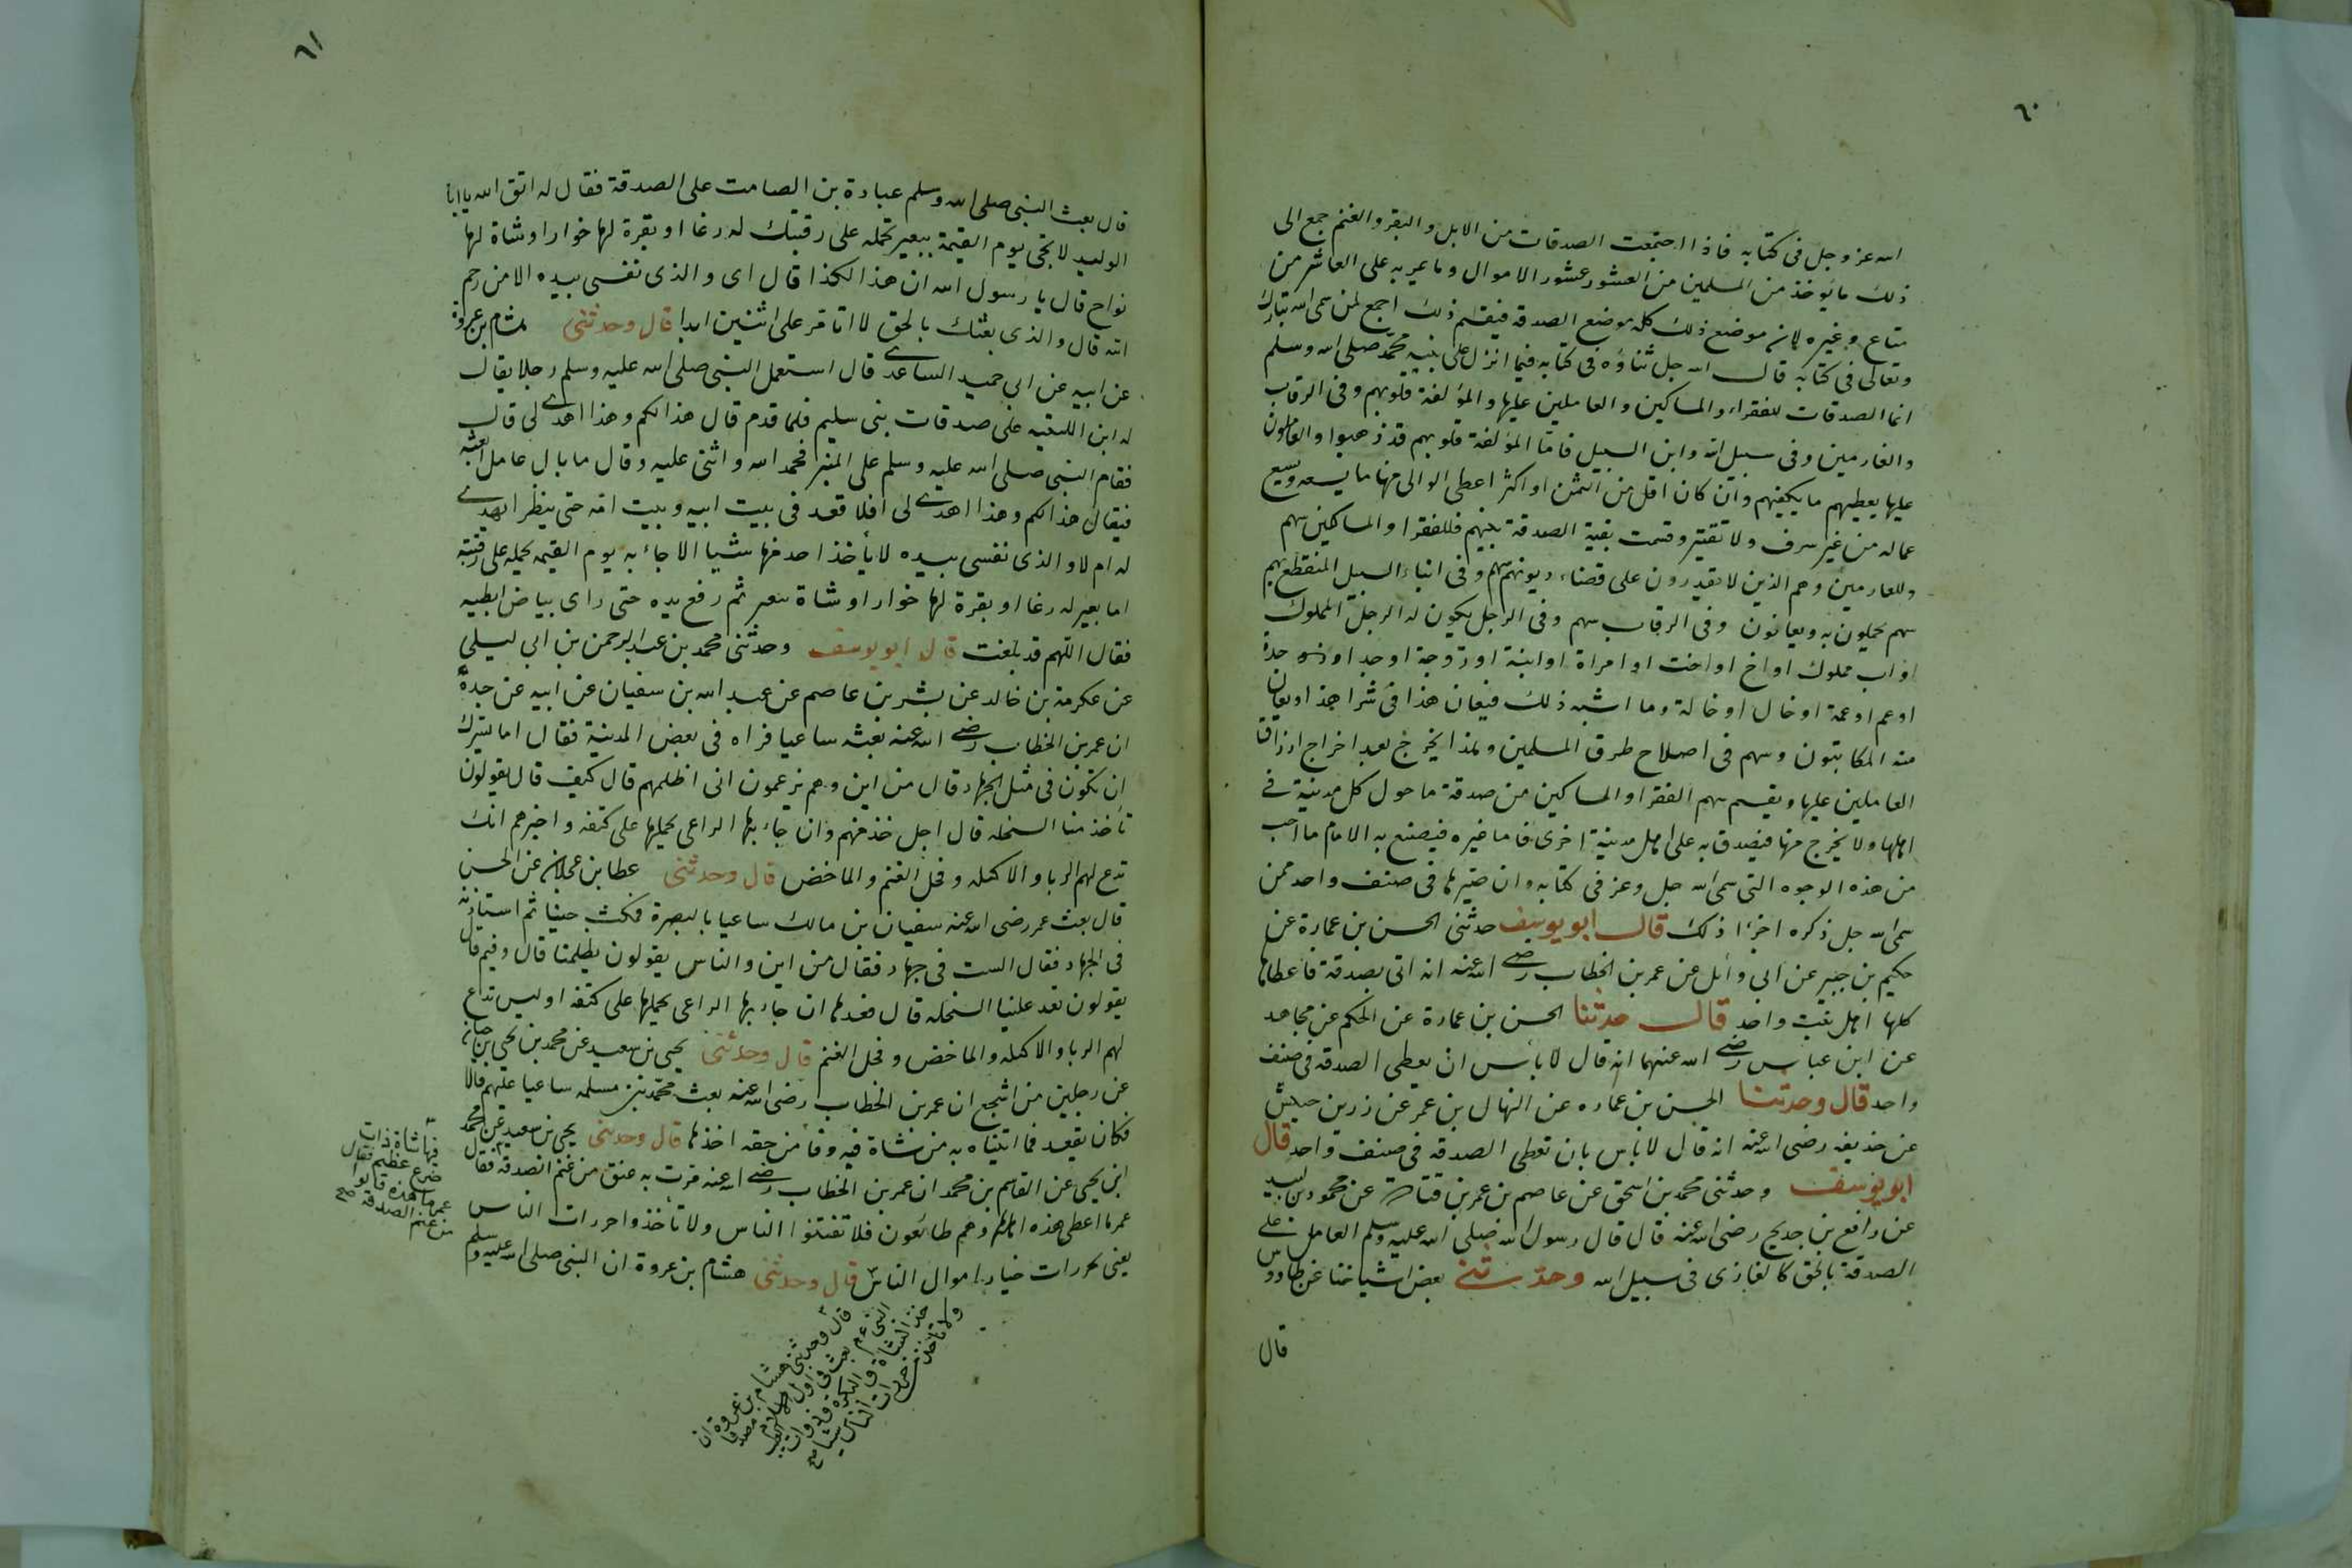 ٦٠
الله عز وجل فى كتابه فاذا اجتمعت الصدقات من الابل والبقر والغنم جمع الى
ذلك ما يوخذ من المسلمين من العشور عشور الاموال وما يمر به على العاشر من
متاع وغيره لان موضع ذلك كله موضع الصدقه فيقسم ذلك اجمع لمن سمى الله تبارك
وتعالى فى كتابه قال الله جل ثناؤه فى كتابه فيما انزل على نبيه محمد صلى الله وسلم
انما الصدقات للفقراء والمساكين والعاملين عليها والمؤلفة قلوبهم وفى الرقاب
والغارمين وفى سبيل الله وابن السبيل فاما المؤلفة قلوبهم قد ذهبوا والعاملون
عليها يعطيهم ما يكفيهم وان كان اقل من الثمن او اكثر اعطى الوالى منها ما يسعه ويسع
عماله من غير سرف ولا تقتير وقسمت بقية الصدقة بينهم فللفقرا والمساكين سهم
وللغارمين وهم الذين لا يقدرون على قضاء ديونهم سهم وفى ابناء السبيل المنقطع بهم
سهم يحملون به ويعانون وفى الرقاب سهم وفى الرجل يكون له الرجل المملوك
او اب مملوك او اخ او اخت او امراة او ابنة او زوجة او جد او جدة
او عم او عمة او خال او خالة وما اشبه ذلك فيعان هذا فى شرا هذا ويعان
منه المكاتبون وسهم فى اصلاح طرق المسلمين وهذا يخرج بعد اخراج ارزاق
العاملين عليها ويقسم سهم الفقرا والمساكين من صدقة ما حول كل مدينة فى
اهلها ولا يخرج منها فيصدق به على اهل مدينة اخرى فاما غيره فيصنع به الامام ما احب
من هذه الوجوه التى سمى الله جل وعز فى كتابه وان صيرها فى صنف واحد ممن
سمى الله جل ذكره اجزا ذلك قال ابو يوسف حدثنى الحسن بن عمارة عن
حكيم بن جبير عن ابى وائل عن عمر بن الخطاب رضى الله عنه انه اتى بصدقة فاعطاها
كلها اهل بيت واحد قال حدثنا الحسن بن عمارة عن الحكم عن مجاهد
عن ابن عباس رضى الله عنهما انه قال لا بأس ان يعطى الصدقه فى صنف
واحد قال وحدثنا الحسن بن عماره عن المنهال بن عمر عن زر بن حبيش
عن حذيفه رضى الله عنه انه قال لا باس بان تعطى الصدقه فى صنف واحد قال
ابو يوسف وحدثنى محمد بن اسحق عن عاصم بن عمر بن قتادة عن محمود بن لبيد
عن رافع بن خديج رضى الله عنه قال قال رسول الله صلى الله عليه وسلم العامل على
الصدقة بالحق كالغازى فى سبيل الله وحدثنى بعض اشياخنا عن طاووس
قال
٦١
قال بعث النبى صلى الله وسلم عبادة بن الصامت على الصدقة فقال له اتق الله يا ابا
الوليد لا تجى يوم القيمة ببعير تحمله على رقبتك له رغا او بقرة لها خوار او شاة لها
نواح قال يا رسول الله ان هذا لكذا قال اى والذى نفسى بيده الا من رحم
الله قال والذى بعثك بالحق لا اتامر على اثنين ابدا قال وحدثنى هشام بن عروة
عن ابيه عن ابى حميد الساعدى قال استعمل النبى صلى الله عليه وسلم رجلا يقال
له ابن اللتبيه على صدقات بنى سليم فلما قدم قال هذا لكم وهذا اهدى لى قال
فقام النبى صلى الله عليه وسلم على المنبر فحمد الله واثنى عليه وقال ما بال عامل ابعثه
فيقال هذا لكم وهذا اهدى لى افلا قعد فى بيت ابيه وبيت امه حتى ينظر ايهدى
له ام لا والذى نفسى بيده لا يأخذ احد منها شيا الا جاء به يوم القيمه يحمله على رقبته
اما بعير له رغا او بقرة لها خوار او شاة تيعر ثم رفع يده حتى راى بياض ابطيه
فقال اللهم قد بلغت قال ابو يوسف وحدثنى محمد بن عبد الرحمن بن ابى ليلى
عن عكرمة بن خالد عن بشر بن عاصم عن عبد الله بن سفيان عن ابيه عن جده
ان عمر بن الخطاب رضى الله عنه بعثه ساعيا فراه فى بعض المدينة فقال اما يسرك
ان تكون فى مثل الجهاد قال من اين وهم يزعمون انى اظلمهم قال كيف قال يقولون
تأخذ منا السخله قال اجل خذ منهم وان جاء بها الراعى يحملها على كتفه واخبرهم انك
تدع لهم الربا والاكيله وفحل الغنم والماخض قال وحدثنى عطا بن عجلان عن الحسن
قال بعث عمر رضى الله عنه سفيان بن مالك ساعيا بالبصرة فمكث حينا ثم استاذنه
فى الجهاد فقال الست فى جهاد فقال من اين والناس يقولون يظلمنا قال وفيم قال
يقولون تعد علينا السخله قال فعدها ان جاء بها الراعى يحملها على كتفه اوليس تدع
لهم الربا والاكيله والماخض وفحل الغنم قال وحدثنى يحيى بن سعيد عن محمد بن يحيى بن حبان
عن رجلين من اشجع ان عمر بن الخطاب رضى الله عنه بعث محمد بن مسلمه ساعيا عليهم قالا
فكان يقعد فما اتيناه به من شاة فيه وفأ من حقه اخذها قال وحدثنى يحيى بن سعيد عن محمد
ابن يحيى عن القاسم بن محمد ان عمر بن الخطاب رضى الله عنه مرت به عنق من غنم الصدقه فقال
عمر ما اعطى هذه اهلها وهم طائعون فلا تفتنوا الناس ولا تأخذوا حررات الناس
يعنى بحررات خيار اموال الناس قال وحدثنى هشام بن عروة ان النبى صلى الله عليه وسلم
فيها شاة ذات
ضرع عظيم فقال
عمر ما هذه قالوا
من غنم الصدقه صح
قال وحدثنى هشام بن عروة ان
النبى عم بعث فى اول الاسلام مصدقا
خذ الشاة والبكره وذوات العيب
ولا تأخذ من حررات الناس شيا صح